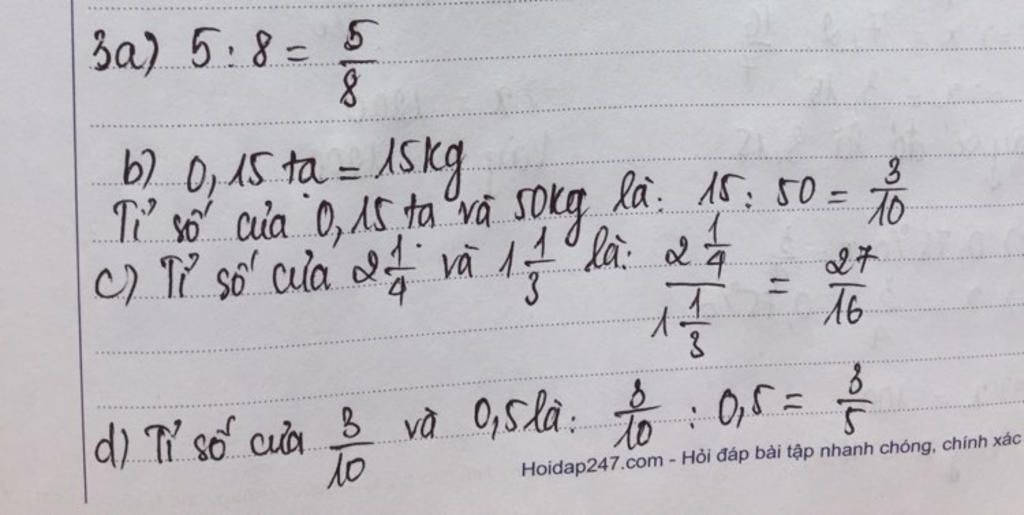 3a) 5 : 8 = 5/8
b) 0,15 tạ = 15kg
Tỉ số của 0,15 tạ và 50kg là: 15 : 50 = 3/10
c) Tỉ số của 2 1/4 và 1 1/3 là: 2 1/4 / 1 1/3 = 27/16
d) Tỉ số của 3/10 và 0,5 là: 3/10 : 0,5 = 3/5
Hoidap247.com - Hỏi đáp bài tập nhanh chóng, chính xác